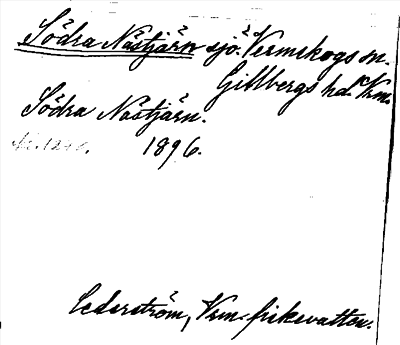 Södra Nästjärn sjö. Vermskogs sn.
Gillbergs hd. Vrm.
Södra Nästjärn.
1896.
Cederström, Vrm. fiskevatten.